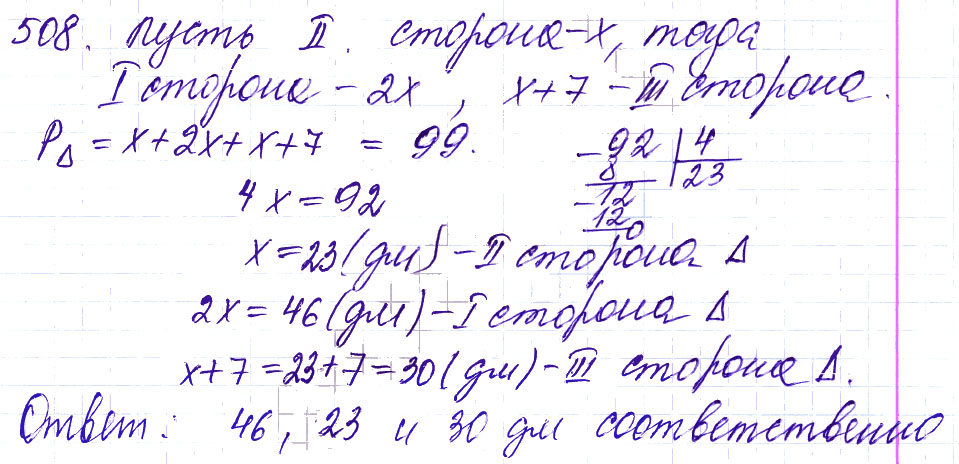 508. Пусть II. сторона - x, тогда
I сторона - 2x, x+7 - III сторона.
P∆ = x+2x+x+7 = 99.
-92 | 4
8 23
-12
12
0
4x = 92
x = 23 (дм) - II сторона ∆
2x = 46 (дм) - I сторона ∆
x+7 = 23+7 = 30 (дм) - III сторона ∆.
Ответ: 46, 23 и 30 дм соответственно